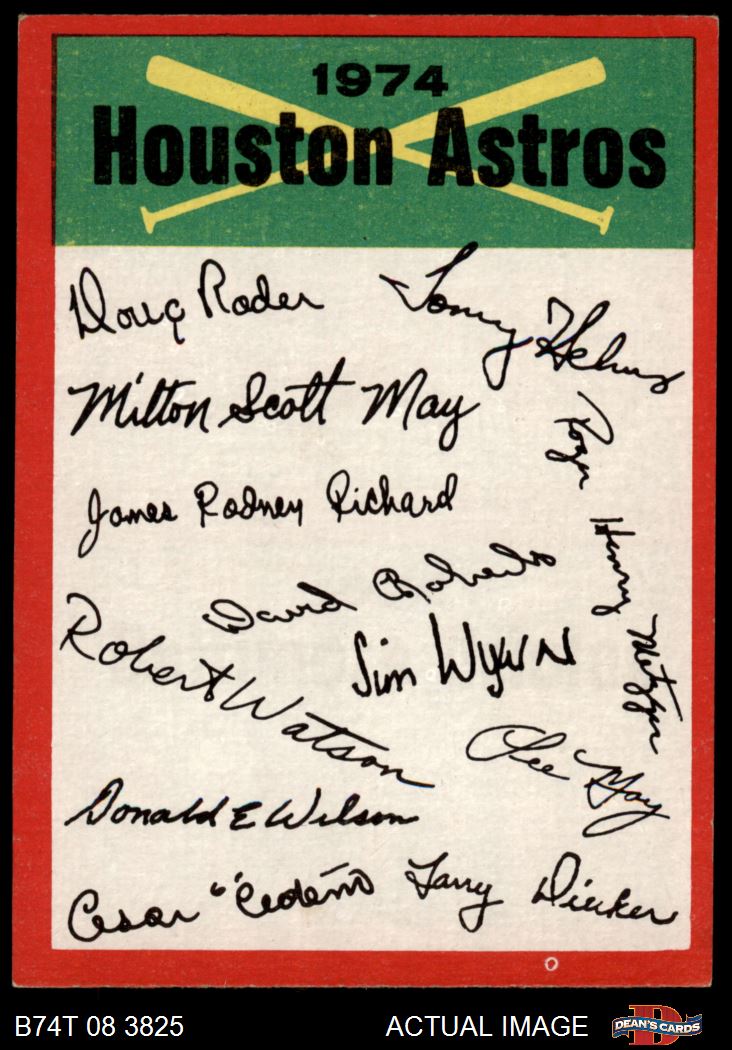 1974
Houston Astros
Doug Rader
Tommy Helms
Milton Scott May
Roger Henry Metzger
James Rodney Richard
David Roberts
Robert Watson
Jim Wynn
Lee May
Donald E Wilson
Cesar "Cedeño
Larry Dierker
B74T 08 3825
ACTUAL IMAGE
DEAN'S CARDS